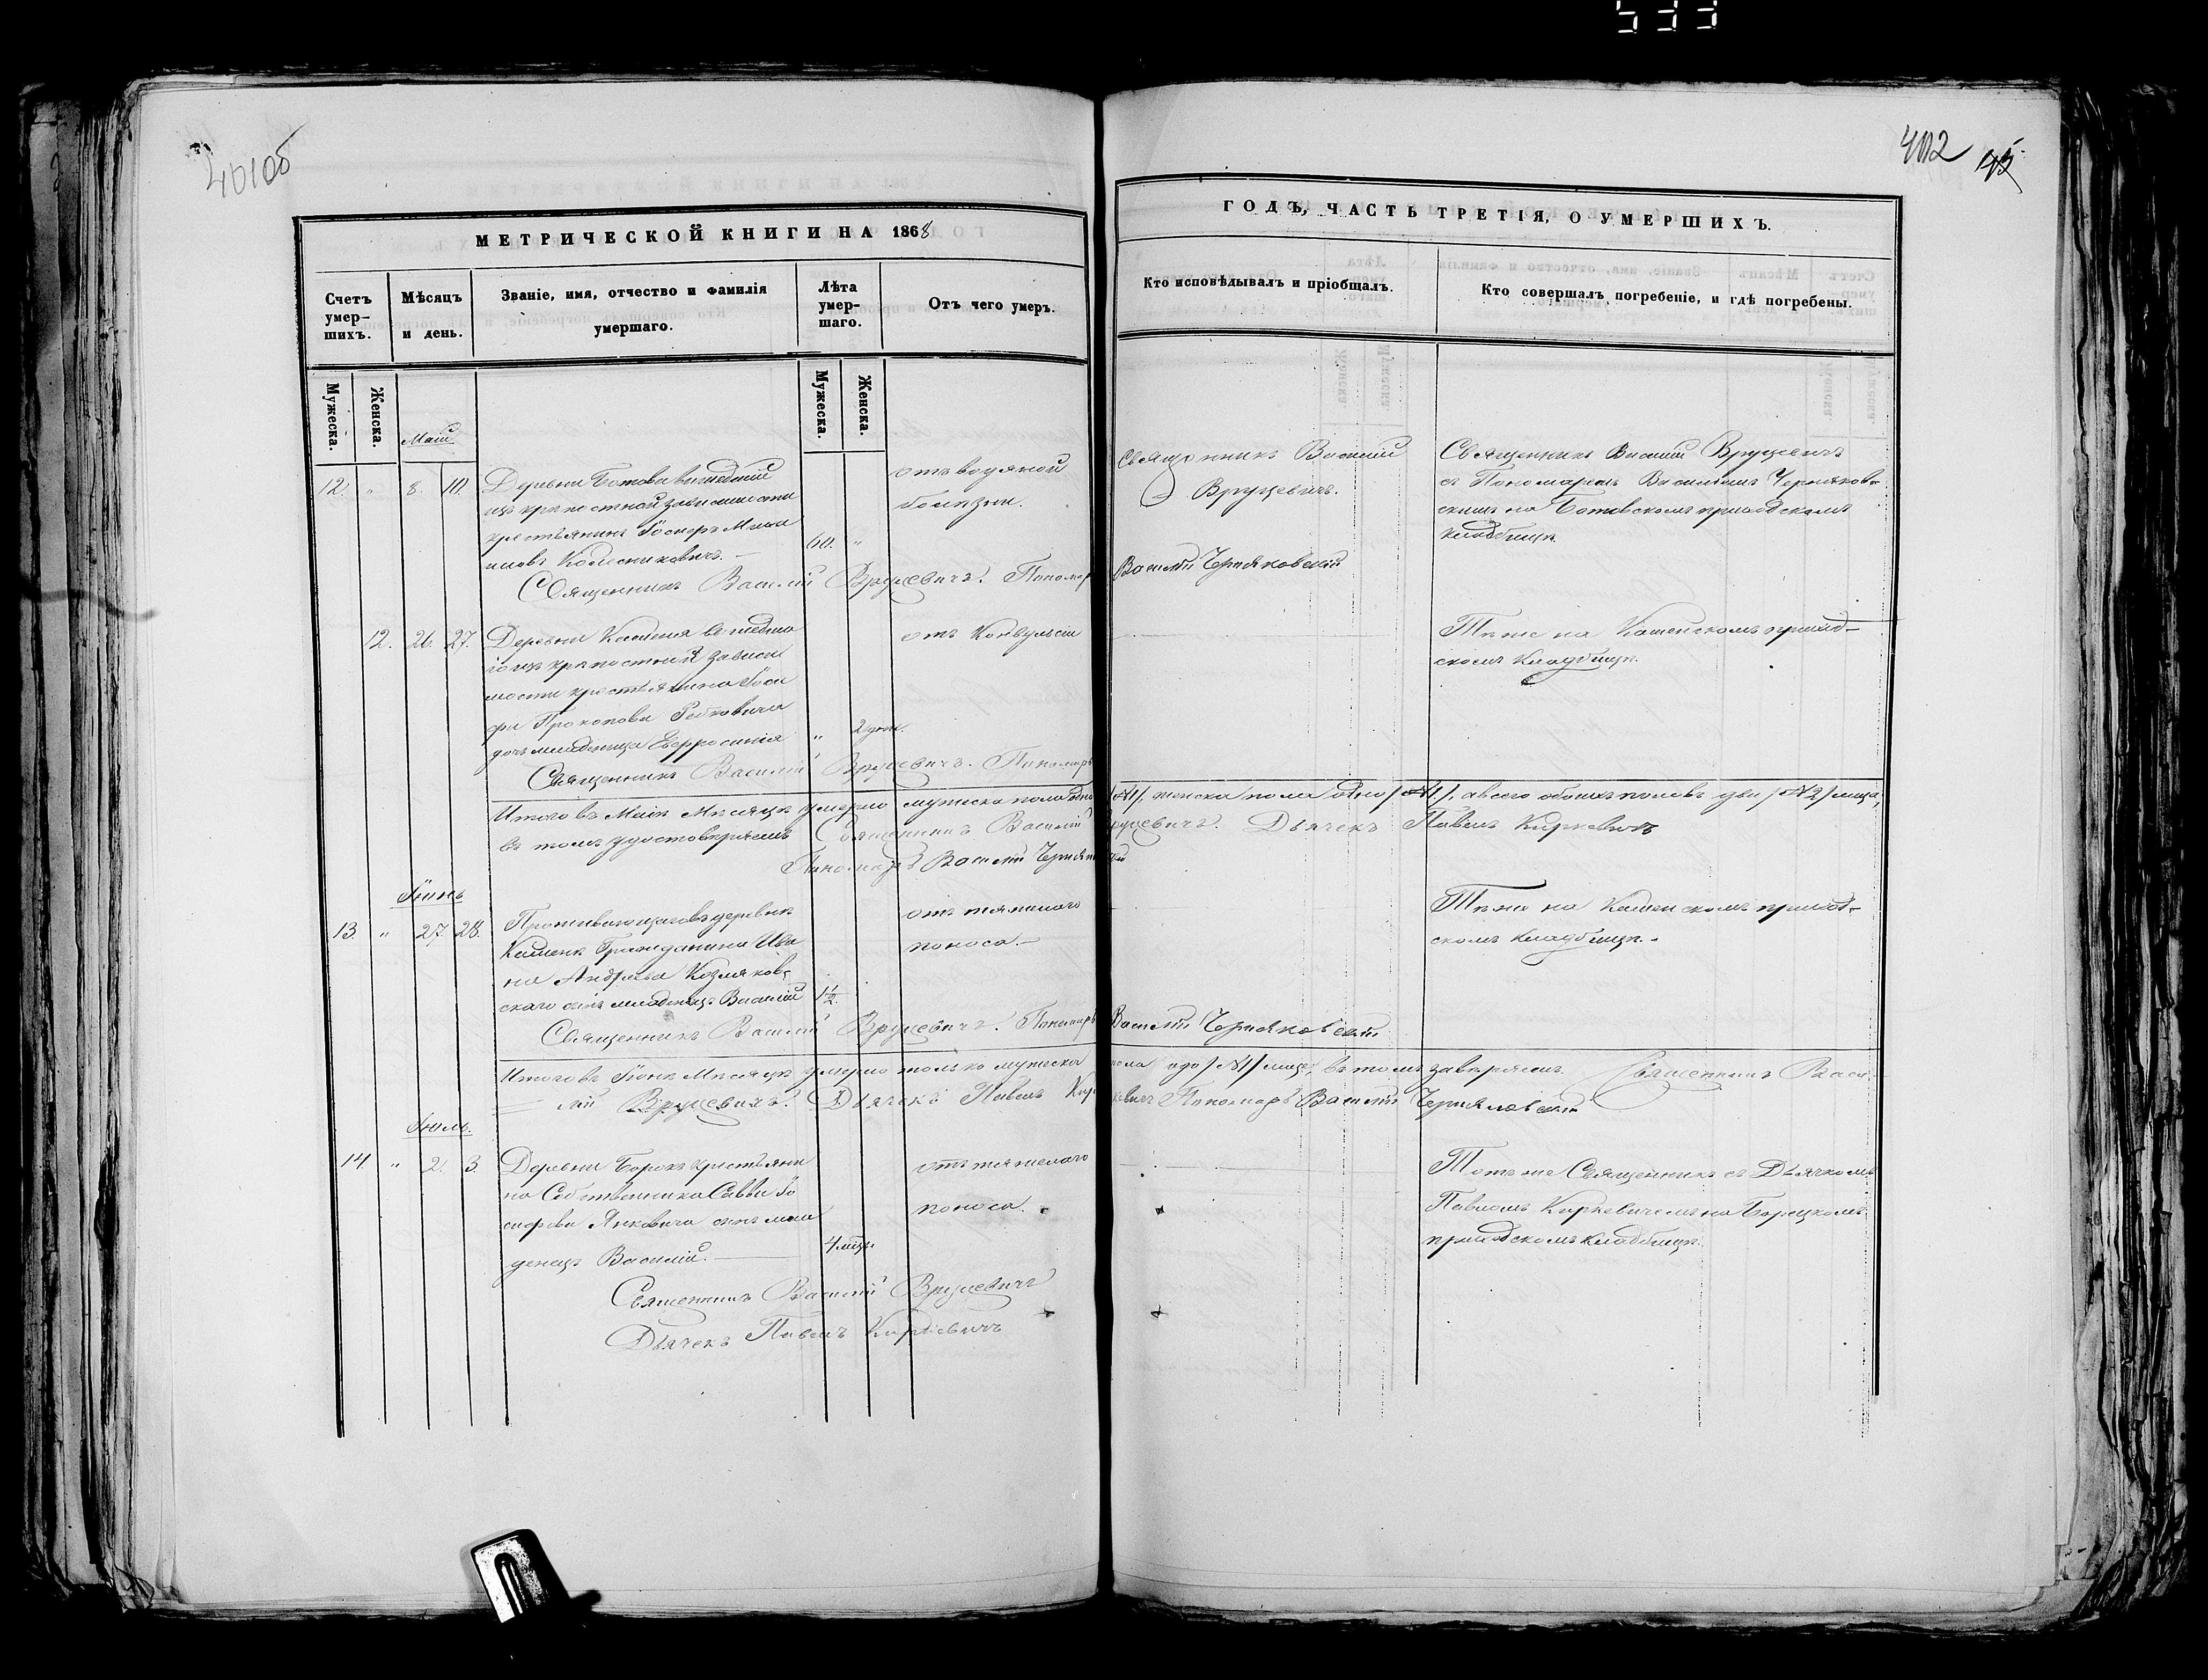 533
401об
402
МЕТРИЧЕСКОЙ КНИГИ НА 1868
ГОДЪ, ЧАСТЬ ТРЕТІЯ, О УМЕРШИХЪ.
Счетъ умер-шихъ.
Мѣсяцъ и день.
Званіе, имя, отчество и фамилія умершаго.
Лѣта умер-шаго.
Отъ чего умеръ.
Кто исповѣдывалъ и пріобщалъ.
Кто совершалъ погребеніе, и гдѣ погребены.
Мужеска.
Женска.
Мужеска.
Женска.
Май
12. " 8. 10.
Деревни Ботова вышедшій
изъ крѣпостной зависимости
крестьянинъ Іосифъ
Колесниковичъ. —
60. "
отъ водяной
болѣзни.
Священникъ Василій
Вруцевичъ.
Священникъ Василій Вруцевичъ
съ Пономаремъ Василіемъ Черняков-
скимъ на Ботовскомъ приходскомъ
кладбищѣ
Священникъ Василій Вруцевичъ. Пономарь Василій Черняковскій
12. 26. 27.
Деревни Каменя вышедша
го изъ крѣпостной зависи
мости крестьянина Іоси
фа Прокопова
дочь младеница Евфросинія
" 2 дня.
отъ Конвульсіи
Тѣ же на Каменскомъ приход-
скомъ кладбищѣ.
Священникъ Василій Вруцевичъ. Пономарь
Итого въ Маѣ Мѣсяцѣ умерло мужеска пола одно /№1/, женска пола одно /№1/, а всего обоихъ половъ два /№2/ лица,
въ томъ удостовѣряемъ Священникъ Василій Вруцевичъ. Дьячекъ Павелъ Киркевичъ
Пономарь Василій Черняковскій
Іюнь
13. " 27. 28.
Проживающаго въ деревнѣ
Каменѣ Гражданина Ива
на Андреева Козляков-
скаго сынъ младенецъ Василій
1 1/2.
отъ тяжелаго
поноса. —
Тѣ же на Каменскомъ приход-
скомъ кладбищѣ. -
Священникъ Василій Вруцевичъ. Пономарь Василій Черняковскій
Итого въ Іюнѣ Мѣсяцѣ умерло только мужеска пола одно /№1/ лице, въ томъ завѣряемъ Священникъ Васи-
лій Вруцевичъ. Дьячекъ Павелъ Киркевичъ Пономарь Василій Черняковскій
Іюль.
14. " 2. 3.
Деревни Борокъ крестьяни
на Собственника Саввы Іо
сифова Янковича сынъ мла
денецъ Василій. —
4 мѣся.
отъ тяжелаго
поноса.
Тотъ же Священникъ съ Дьячкомъ
Павломъ Киркевичемъ на Борецкомъ
приходскомъ кладбищѣ.
Священникъ Василій Вруцевичъ
Дьячекъ Павелъ Киркевичъ